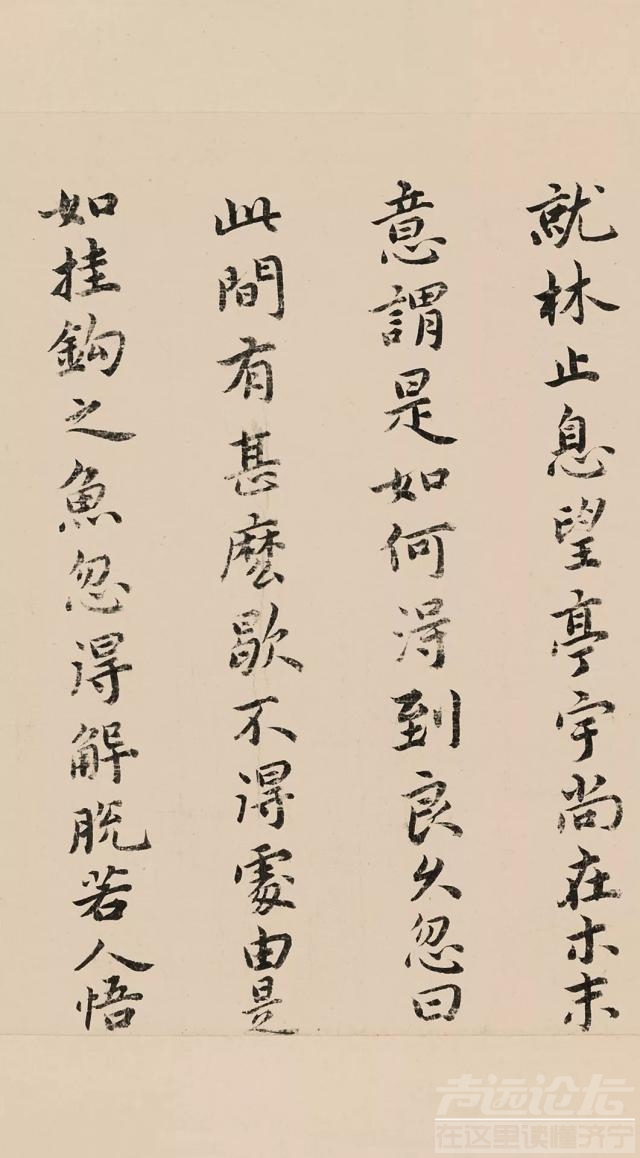 就林止息望亭宇尚在木末
意謂是如何得到良久忽曰
此間有甚麼歇不得處由是
如挂鈎之魚忽得解脫若人悟
声远论坛
在这里读懂济宁